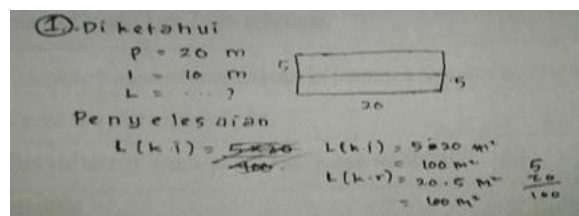 ① Diketahui
P = 20 m
l = 10 m
L = ... ?
5
5
20
Penyelesaian
L(k.i) = 5×20
100
L(k.i) = 5×20 m²
= 100 m²
L(k.r) = 20.5 m²
= 100 m²
5
20
100